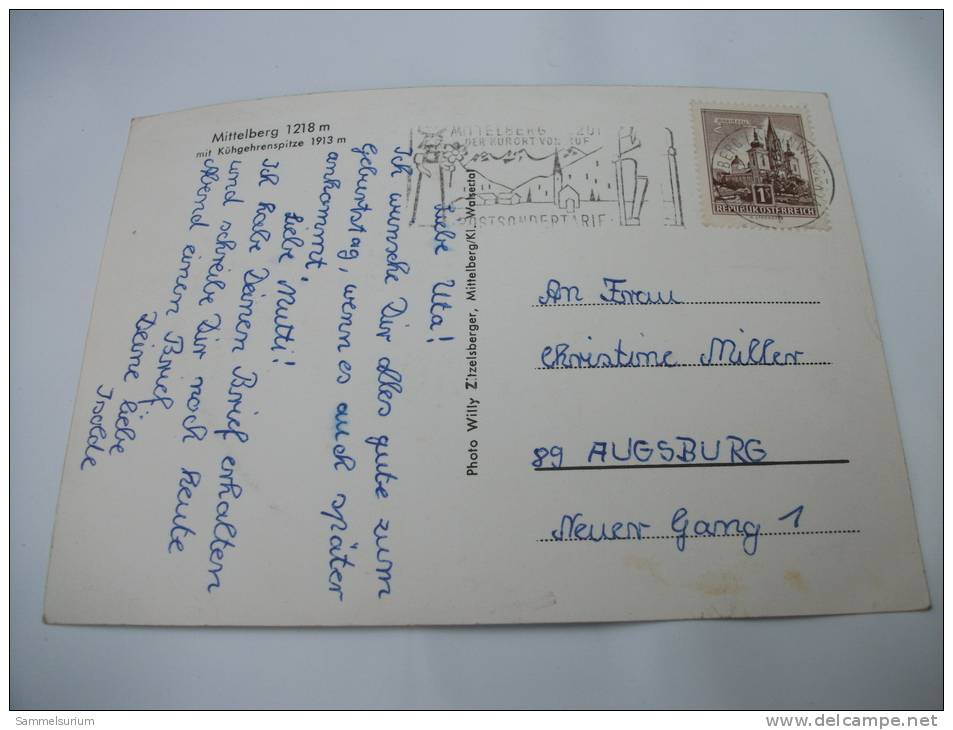 Mittelberg 1218 m
mit Kühgehrenspitze 1913 m
Liebe Uta!
Ich wünsche Dir alles gute zum
Geburtstag, wenn es auch später
ankommt.
Liebe Mutti!
Ich habe Deinen Brief erhalten
und schreibe Dir noch heute
Abend einen Brief.
Deine liebe
Isolde
Photo Willy Zitzelsberger, Mittelberg/Kl. Walsertal
MITTELBERG
DER KURORT VON RUF
POSTSONDERTARIF
1S
REPUBLIK ÖSTERREICH
An Frau
Christine Miller
89 AUGSBURG
Neuer Gang 1
Sammelsurium
www.delcampe.net